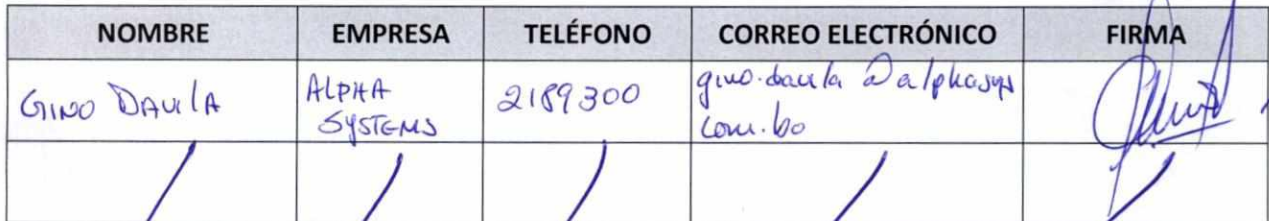 NOMBRE EMPRESA TELÉFONO CORREO ELECTRÓNICO FIRMA
GINO DAVILA ALPHA SYSTEMS 2189300 gino.davila@alphasys com.bo